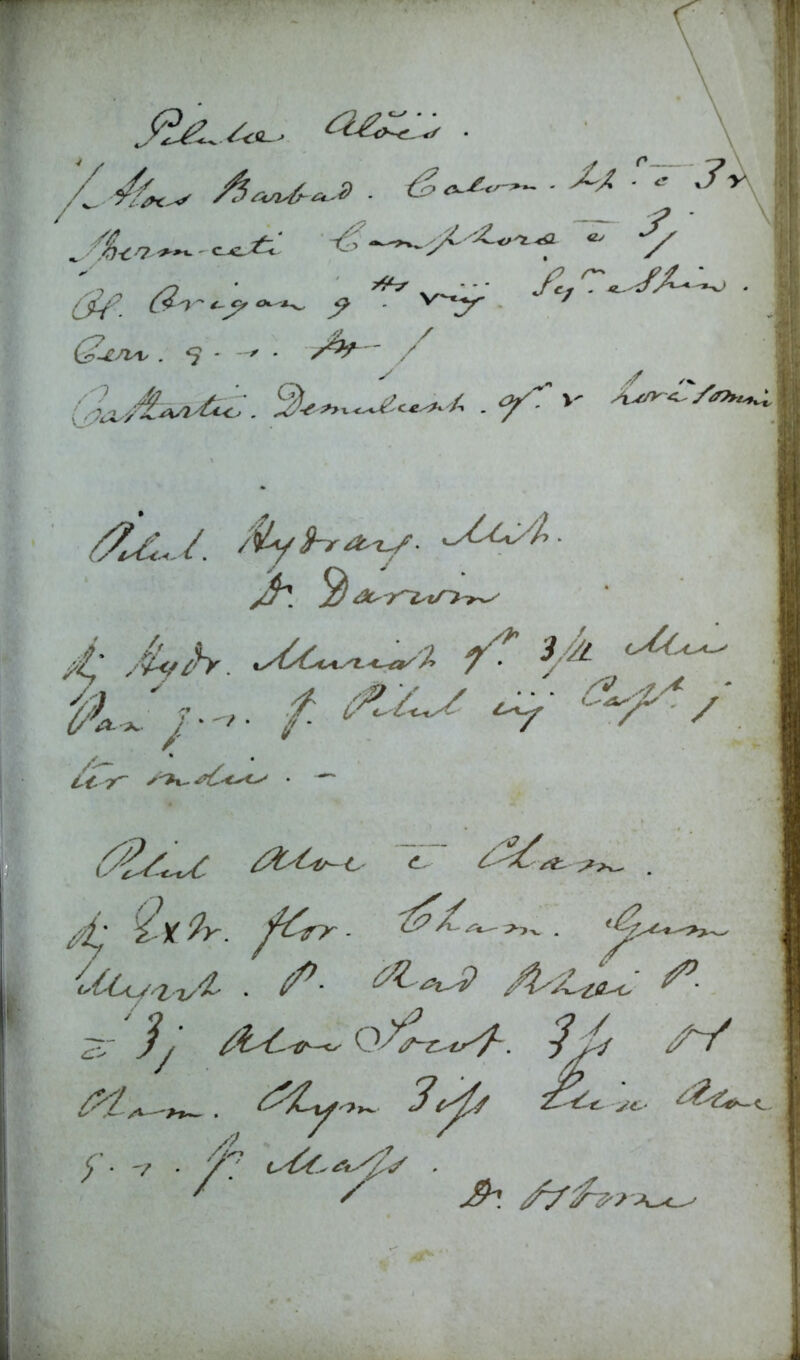 Pilulæ Aloës.
Aloes Barbad. Calom. ppt. ā ʒv
Sperm-ceti Camphoræ ā ʒj
Ol. Origan gtts viij
Gen. q.s. M
Cathartic. Demulcent. gr. v hora somni
Pilul. Hydrarg. Mit.
Dr. Darwin
℞ Hydr. Muriat gr. Mic
Pan q.s. f. Pilul iij Capt. j
ter indie. –
Pilul Aloe c̄ Cham.
℞ Extr. flor. Cham. Gum
Myrrh. P. Rad Rhæi P.
ā ʒj Aloe Socot. ʒſs Ol
Cham. Chym ʒiſs Elix Aloe
q.s. f. Maſs.
Dr. Osborne